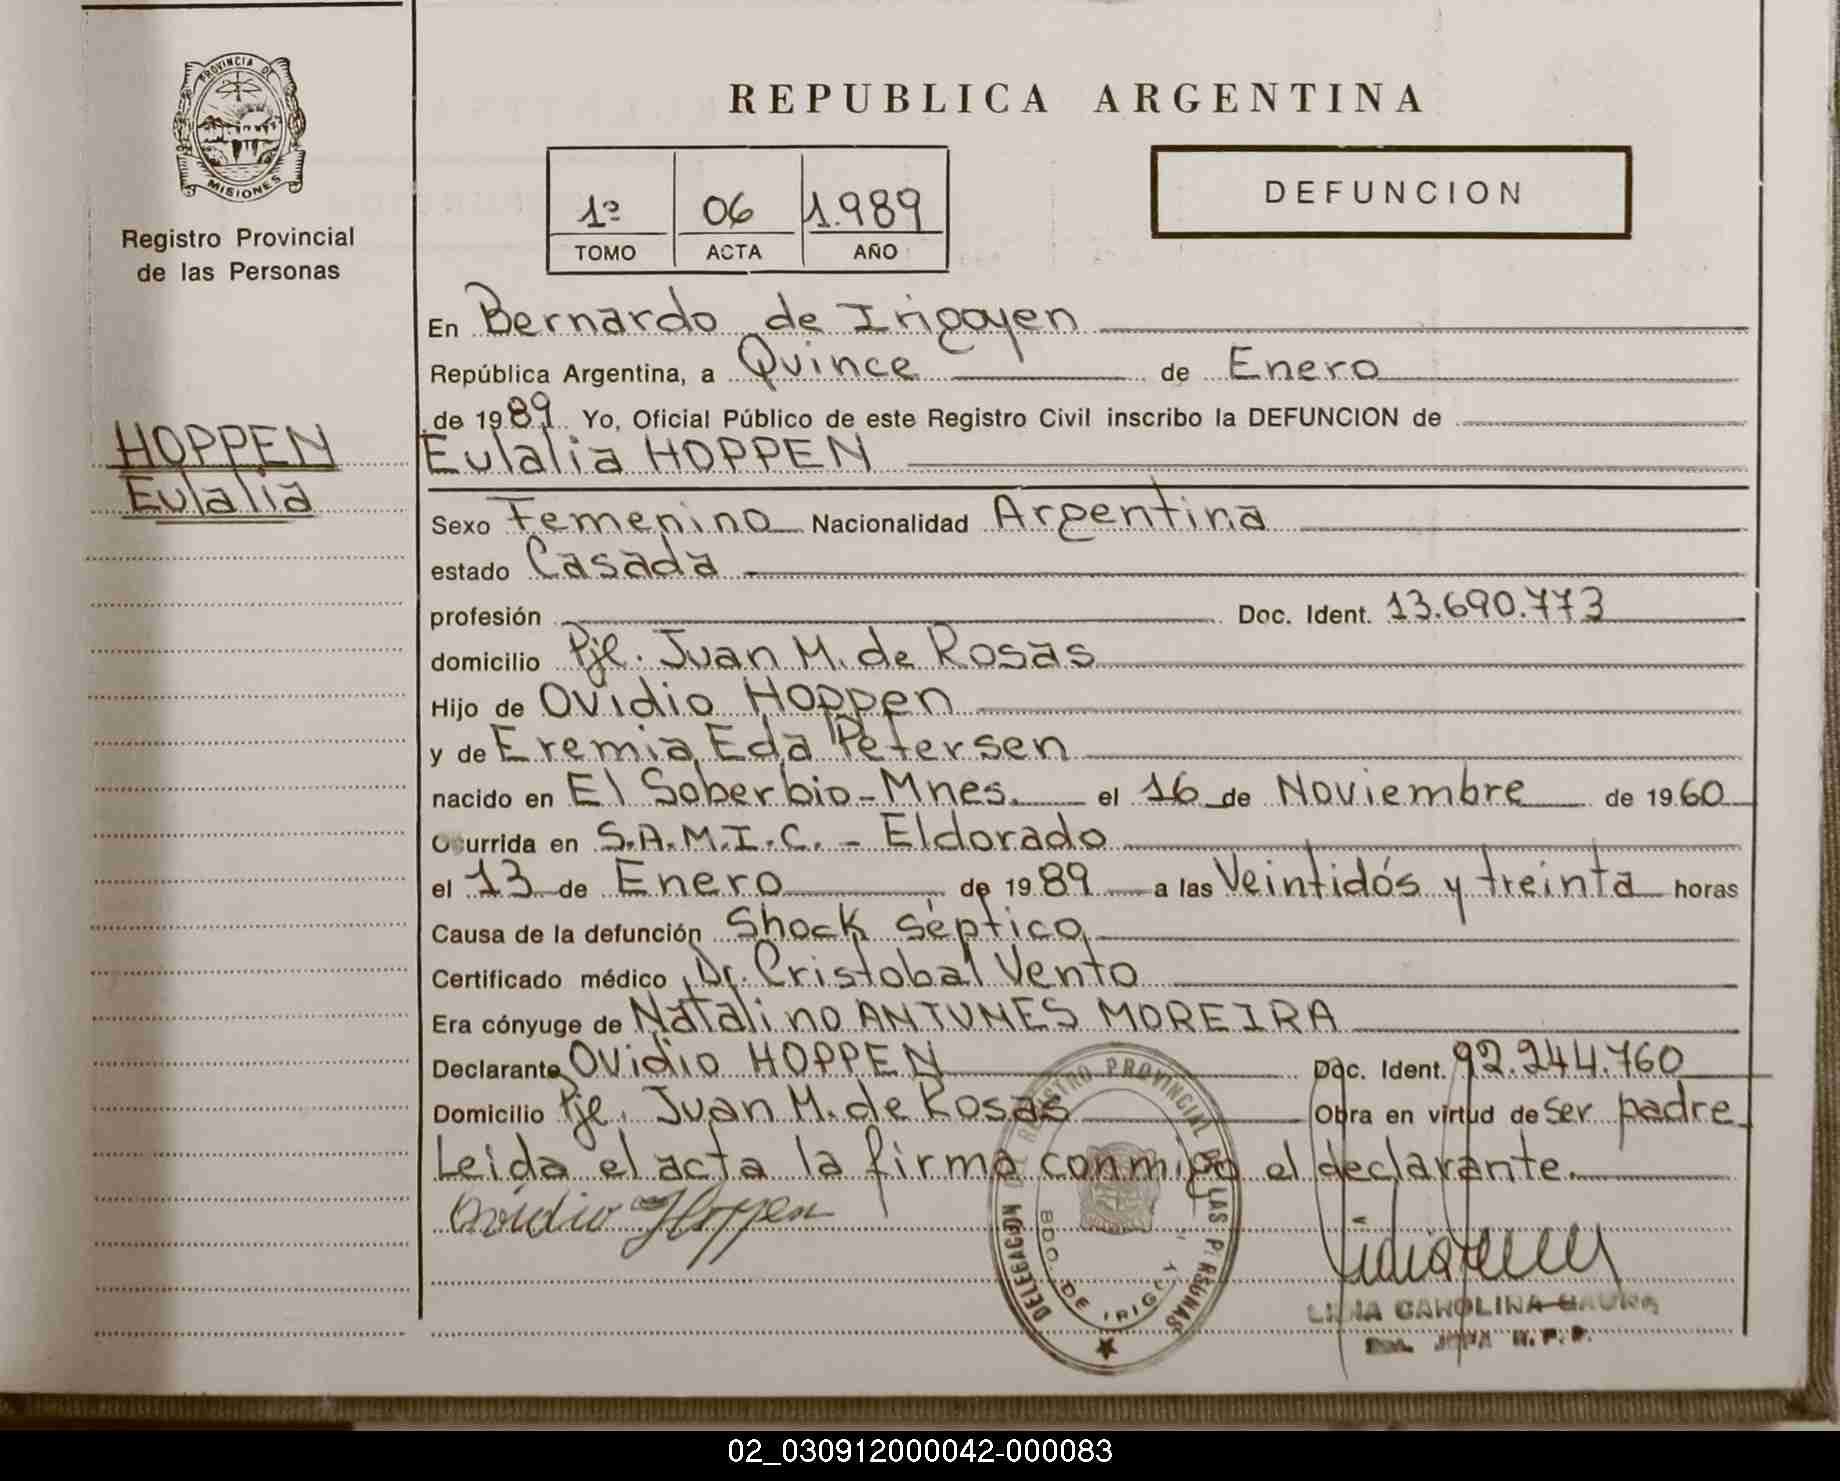 PROVINCIA DE
MISIONES
Registro Provincial
de las Personas
HOPPEN
Eulalia
REPUBLICA ARGENTINA
1º 06 1.989
TOMO ACTA AÑO
DEFUNCION
En Bernardo de Irigoyen
República Argentina, a Quince de Enero
de 1989 Yo, Oficial Público de este Registro Civil inscribo la DEFUNCION de
Eulalia HOPPEN
Sexo Femenino Nacionalidad Argentina
estado Casada
profesión Doc. Ident. 13.690.773
domicilio Pje. Juan M. de Rosas
Hijo de Ovidio Hoppen
y de Eremia Eda Petersen
nacido en El Soberbio-Mnes. el 16 de Noviembre de 1960
Ocurrida en S.A.M.I.C. - Eldorado
el 13 de Enero de 1989 a las Veintidós y treinta horas
Causa de la defunción Shock séptico
Certificado médico Dr. Cristobal Vento
Era cónyuge de Natalino ANTUNES MOREIRA
Declarante Ovidio HOPPEN Doc. Ident. 92.244.760
Domicilio Pje. Juan M. de Rosas Obra en virtud de ser padre
Leida el acta la firma conmigo el declarante.
Ovidio Hoppen
DELEGACION REGISTRO PROVINCIAL DE LAS PERSONAS
BDO. DE IRIGOY
CAROLINA
02_030912000042-000083